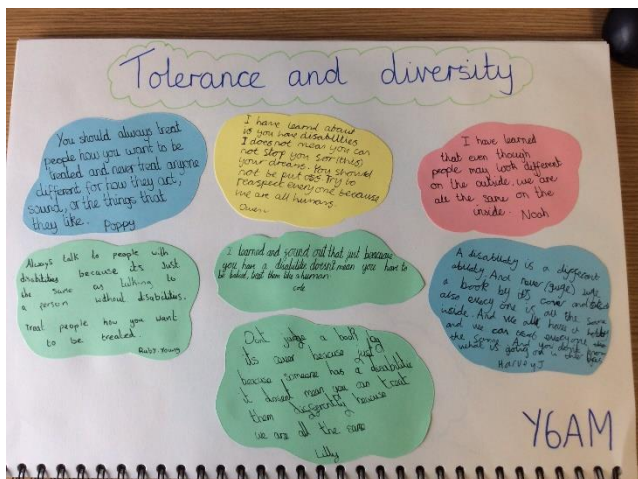 Tolerance and diversity
You should always treat
people how you want to be
treated and never treat anyone
different for how they act,
sound, or the things that
they like. Poppy
I have learnd about
is you have disabilities
I does not mean you can
not stop you sor (this)
your dreams. You should
not be put oss Try to
reaspect everyone because
we are all humans
Owen
I have learned
that even though
people may look different
on the outside, we are
all the same on the
inside. Noah
Always talk to people with
disabilities because its just
the same as talking to
a person without disabilities.
Treat people how you want
to be treated
Ruby. Young
I learned and sound out that just because
you have a disabilitie doesn't mean you have to
be treat them like a human
cole
A disability is a different
ability. And never judge
a book by its cover and
also every one is all the same
inside. And we all have a
and we can treat everyone
the same. And you don't know
what is going on in
Harvey J
Dont judge a book by
its cover because just
because someone has a disabilitie
it doesnt mean you can treat
them differently because
we are all the same
Lilly
Y6AM